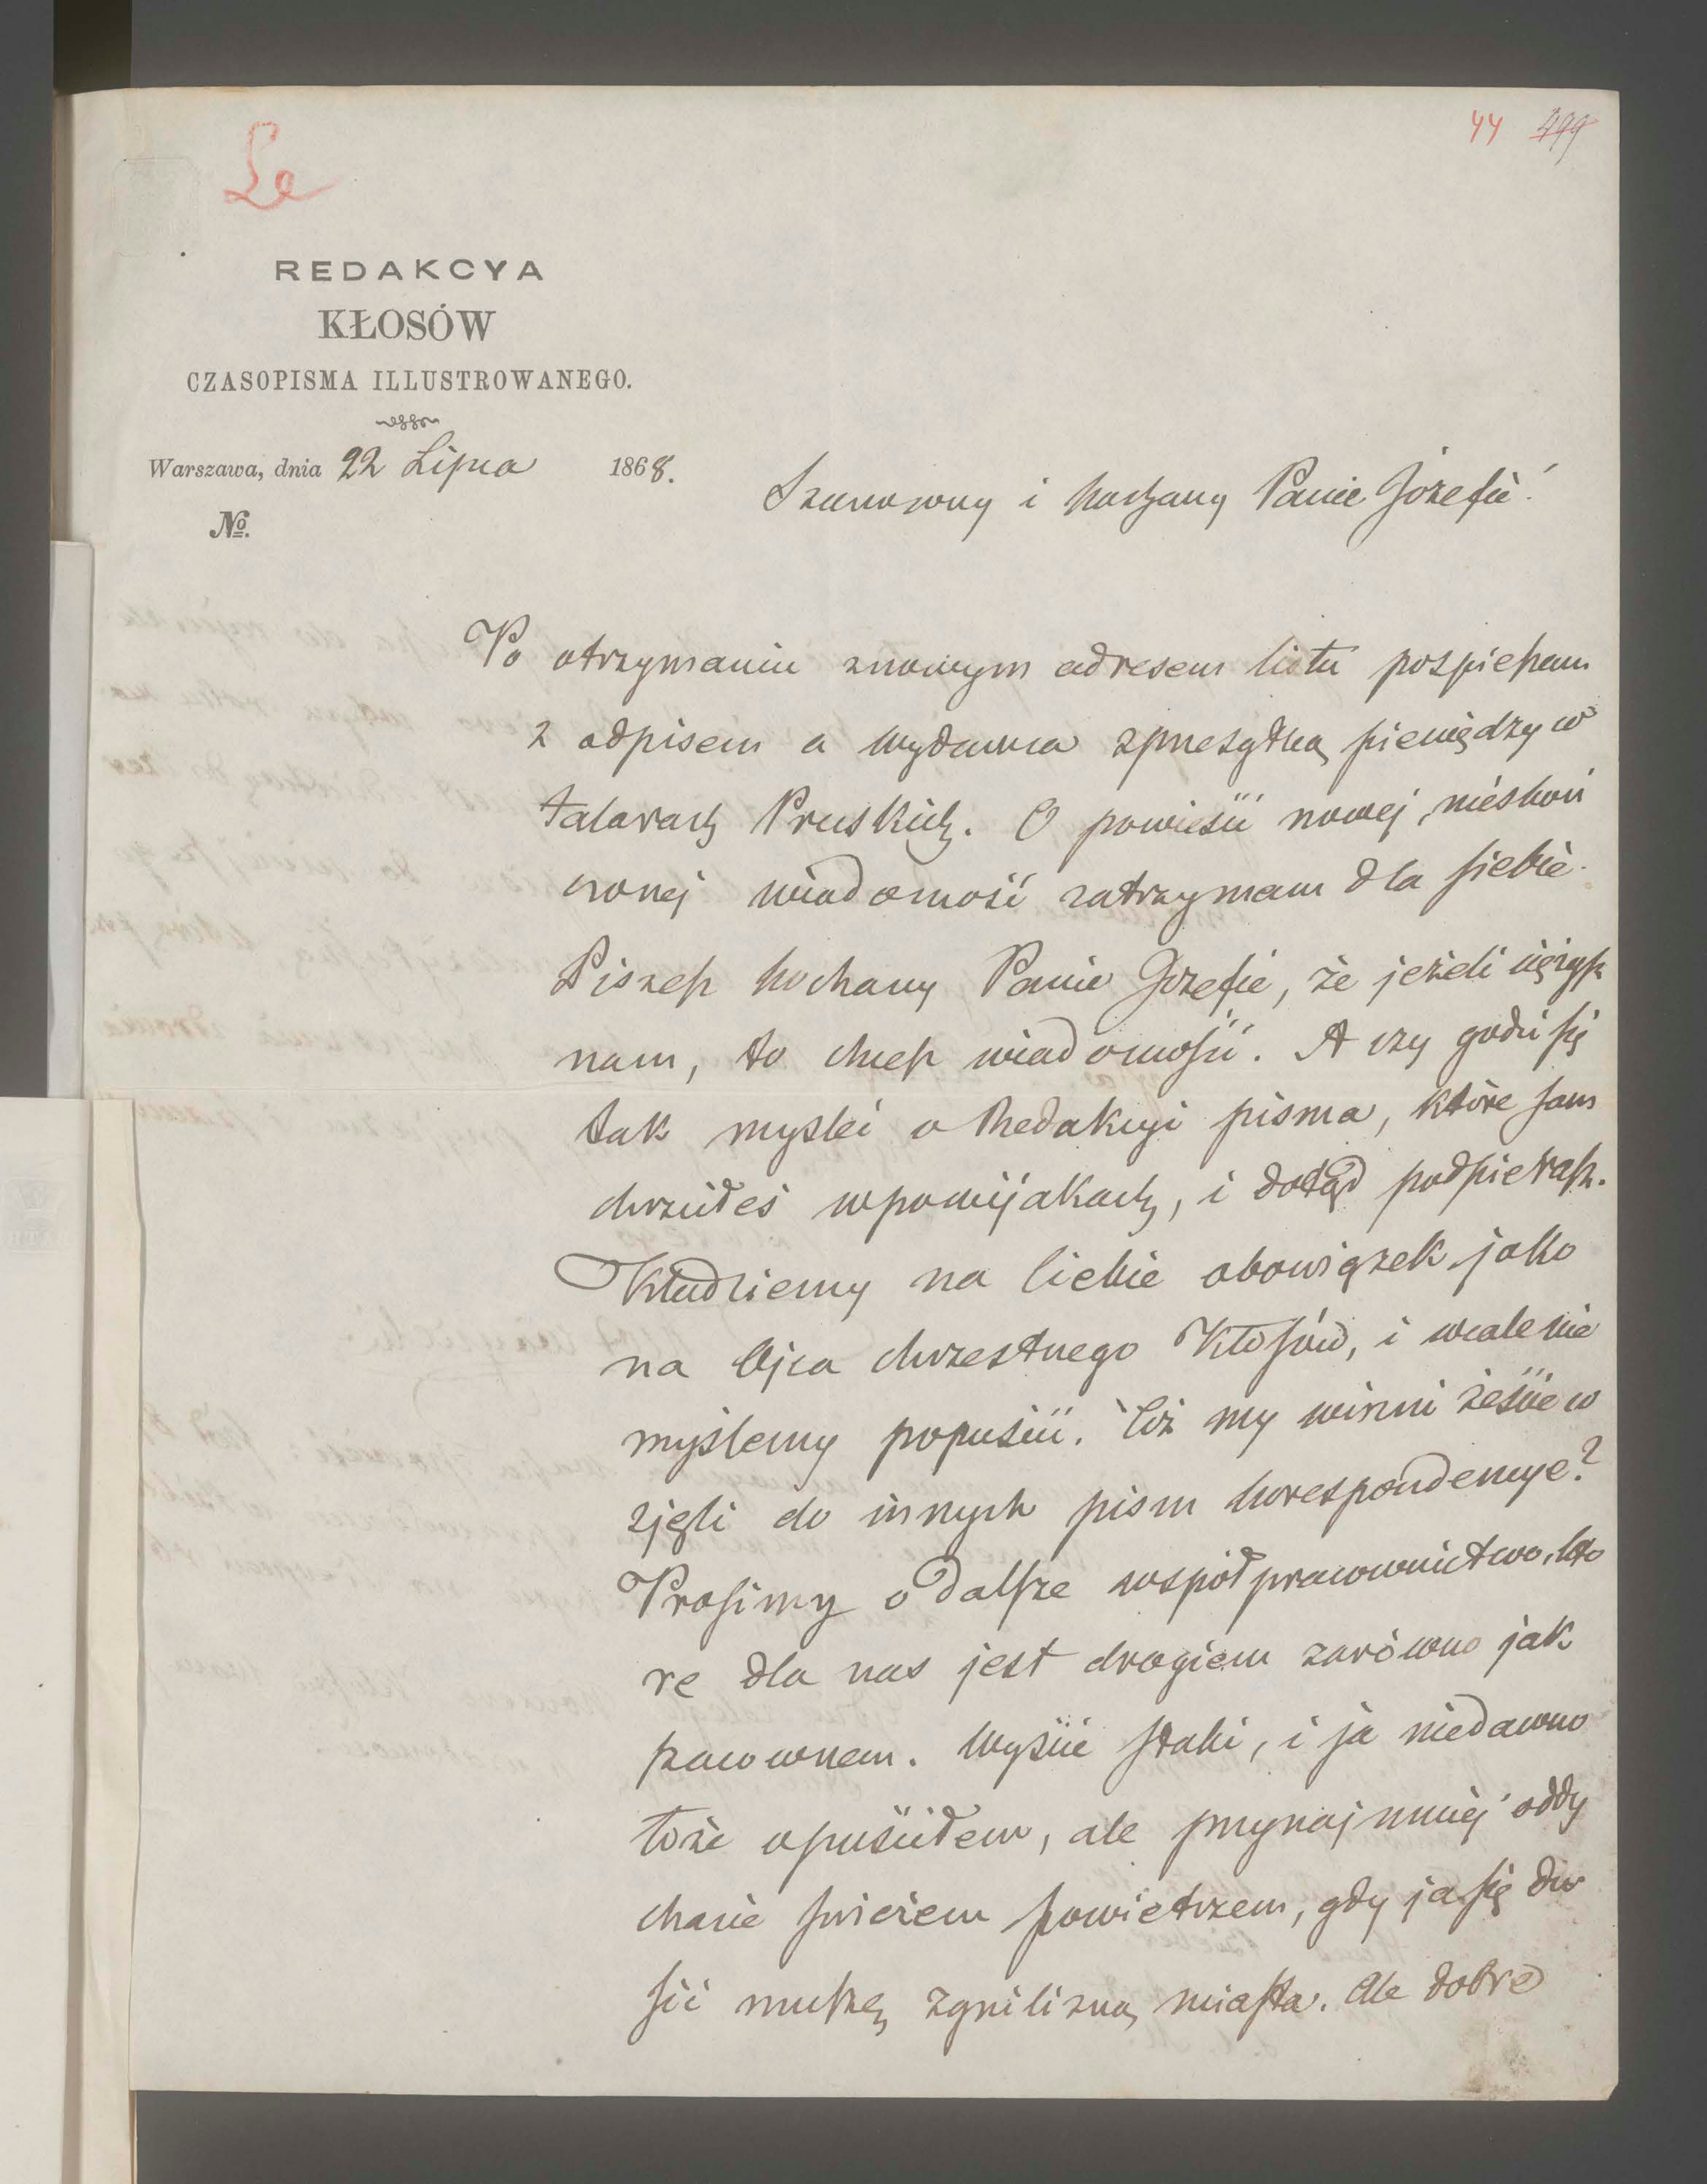 44 499
Le
REDAKCYA
KŁOSÓW
CZASOPISMA ILLUSTROWANEGO.
Warszawa, dnia 22 Lipca 1868.
№.
Szanowny i kochany Panie Józefie!
Po otrzymaniu znowym adresem listu pospieszam
z odpisem a wydawca zprzesyłką pieniędzy w
talarach Pruskich. O powieści nowej, nieskoń
czonej wiadomość zatrzymam dla siebie.
Piszesz kochany Panie Józefie, że jeżeli ciężysz
nam, to chcesz wiadomości. A czy godzi się
tak myśleć o Redakcyi pisma, które sam
chrzciłeś wpowijakach, i dotąd podpierasz.
Kładziemy na Ciebie obowiązek jako
na Ojca chrzestnego Kłosów, i wcale nie
myślemy popuścić. Cóż my winni żeście w
zięli do innych pism korespondencye?
Prosimy o dalsze wspołpracownictwo, któ
re dla nas jest drogiem zarówno jak
szacownem. Wyście słabi, i ja niedawno
łoże opuściłem, ale przynajmniej oddy
chacie świeżem powietrzem, gdy ja się du
sić muszę zgnilizną miasta. Ale dobre